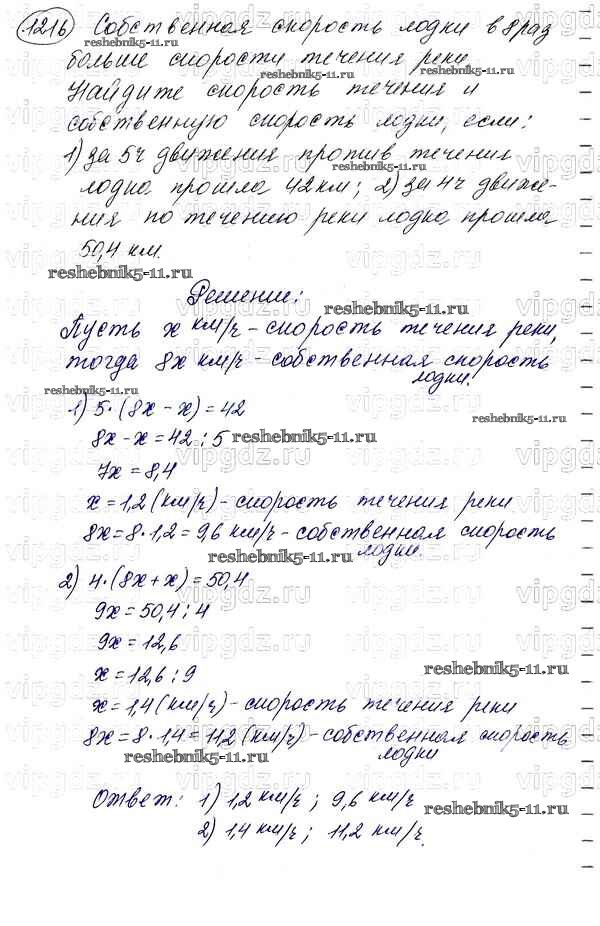 1216 Собственная скорость лодки в 8 раз
больше скорости течения реки.
Найдите скорость течения и
собственную скорость лодки, если:
1) за 5ч движения против течения
лодка прошла 42 км; 2) за 4ч движе-
ния по течению реки лодка прошла
50,4 км.
reshebnik5-11.ru
Решение:
Пусть x км/ч - скорость течения реки,
тогда 8x км/ч - собственная скорость
лодки.
1) 5·(8x - x) = 42
8x - x = 42 : 5
7x = 8,4
x = 1,2 (км/ч) - скорость течения реки
8x = 8·1,2 = 9,6 км/ч - собственная скорость
лодки.
2) 4·(8x + x) = 50,4
9x = 50,4 : 4
9x = 12,6
x = 12,6 : 9
x = 1,4 (км/ч) - скорость течения реки
8x = 8·1,4 = 11,2 (км/ч) - собственная скорость
лодки
Ответ: 1) 1,2 км/ч ; 9,6 км/ч
2) 1,4 км/ч ; 11,2 км/ч.